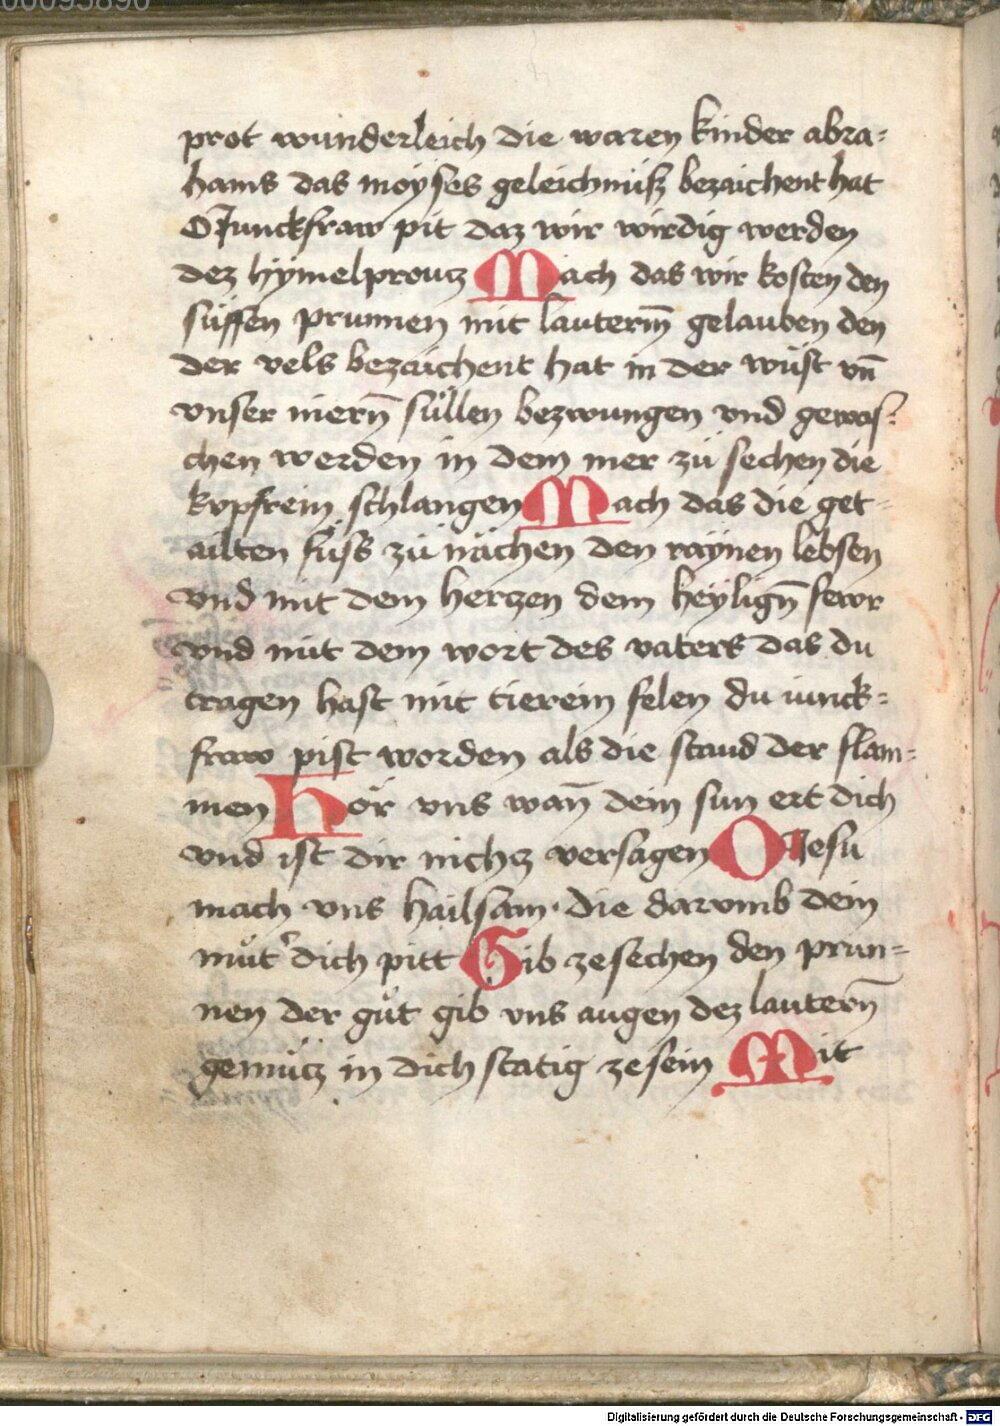 00095890
prot wunderleich die waren kinder abra=
hams das moyses geleichnüsz bezaichent hat
O Junckfraw pit daz wir wirdig werden
dez hymelproutz Mach das wir kosten den
süssen prunnen mit lauterm̄ gelauben den
der vels bezaichent hat in der wüst vn̄
vnser niern̄ süllen bezwungen vnd gewas=
chen werden in dem mer zů sechen die
kupfrein schlangen Mach das die get=
ailten füss zů nächen den raynen lebsen
vnd mit dem hertzen dem heylign̄ fewr
vnd mit dem wort des vaters das du
tragen hast mit tierein felen du iunck=
fraw pist worden als die staud der flam=
men Hör vns wan̄ dein sun ert dich
vnd ist dir nichtz versagen O Jesu
mach vns hailsam · die darvmb dein
můt͛ dich pitt Gib ze sechen den prun=
nen der gůt gib vns augen dez lautern̄
gemütz in dich statig ze sein Mit
Digitalisierung gefördert durch die Deutsche Forschungsgemeinschaft - DFG